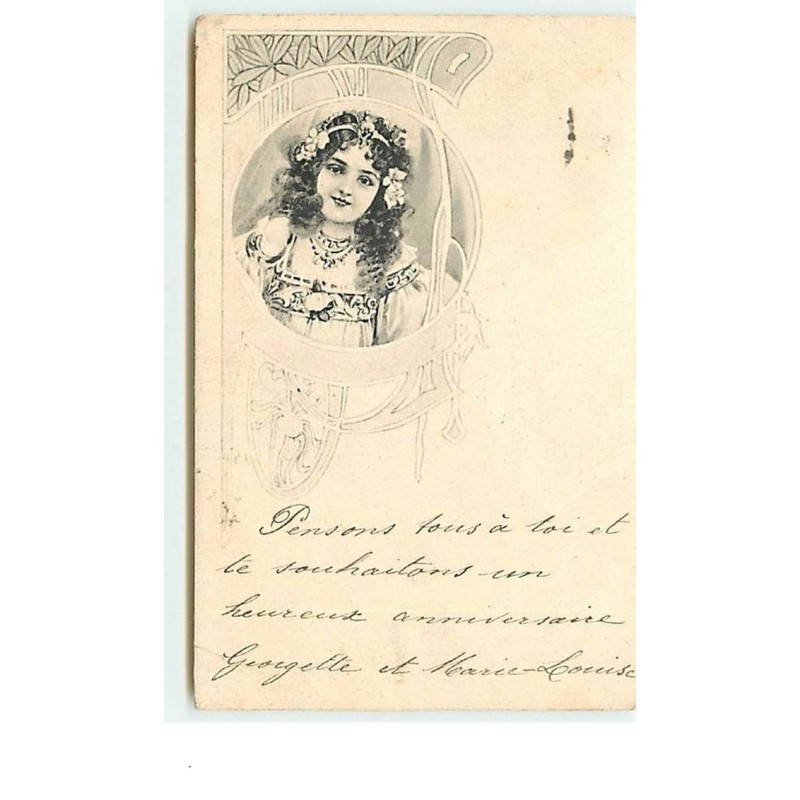 Pensons tous à toi et
te souhaitons un
heureux anniversaire
Georgette et Marie-Louise